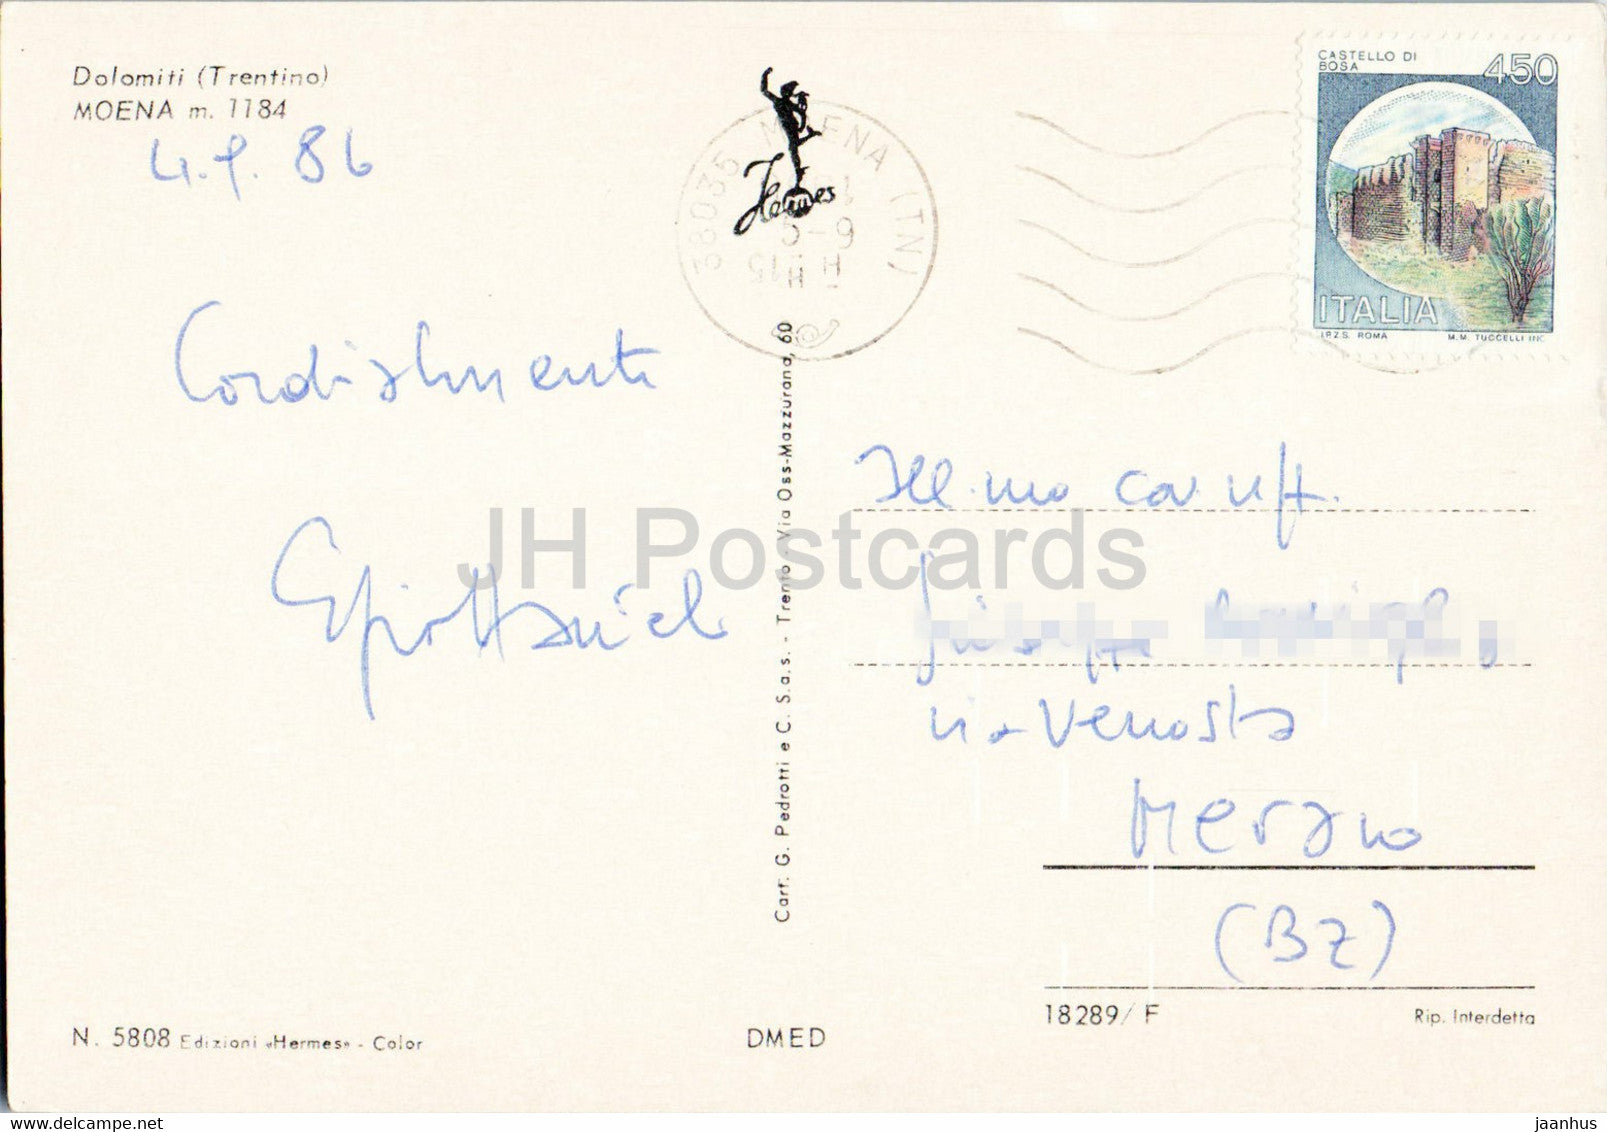 Dolomiti (Trentino)
MOENA m. 1184
4.9.86
Cordialmente
Hermes
38035 MOENA (TN)
CASTELLO DI
BOSA
450
ITALIA
I.P.Z.S. ROMA M.M. TUCCELLI INC.
Cart. G. Pedrotti e C. S.a.s. - Trento - Via Oss-Mazzurana, 60
Ill.mo
via Venosta
Merano
(BZ)
18289/F
Rip. Interdetta
N. 5808 Edizioni «Hermes» - Color
DMED
JH Postcards
delcampe.net
jaanhus